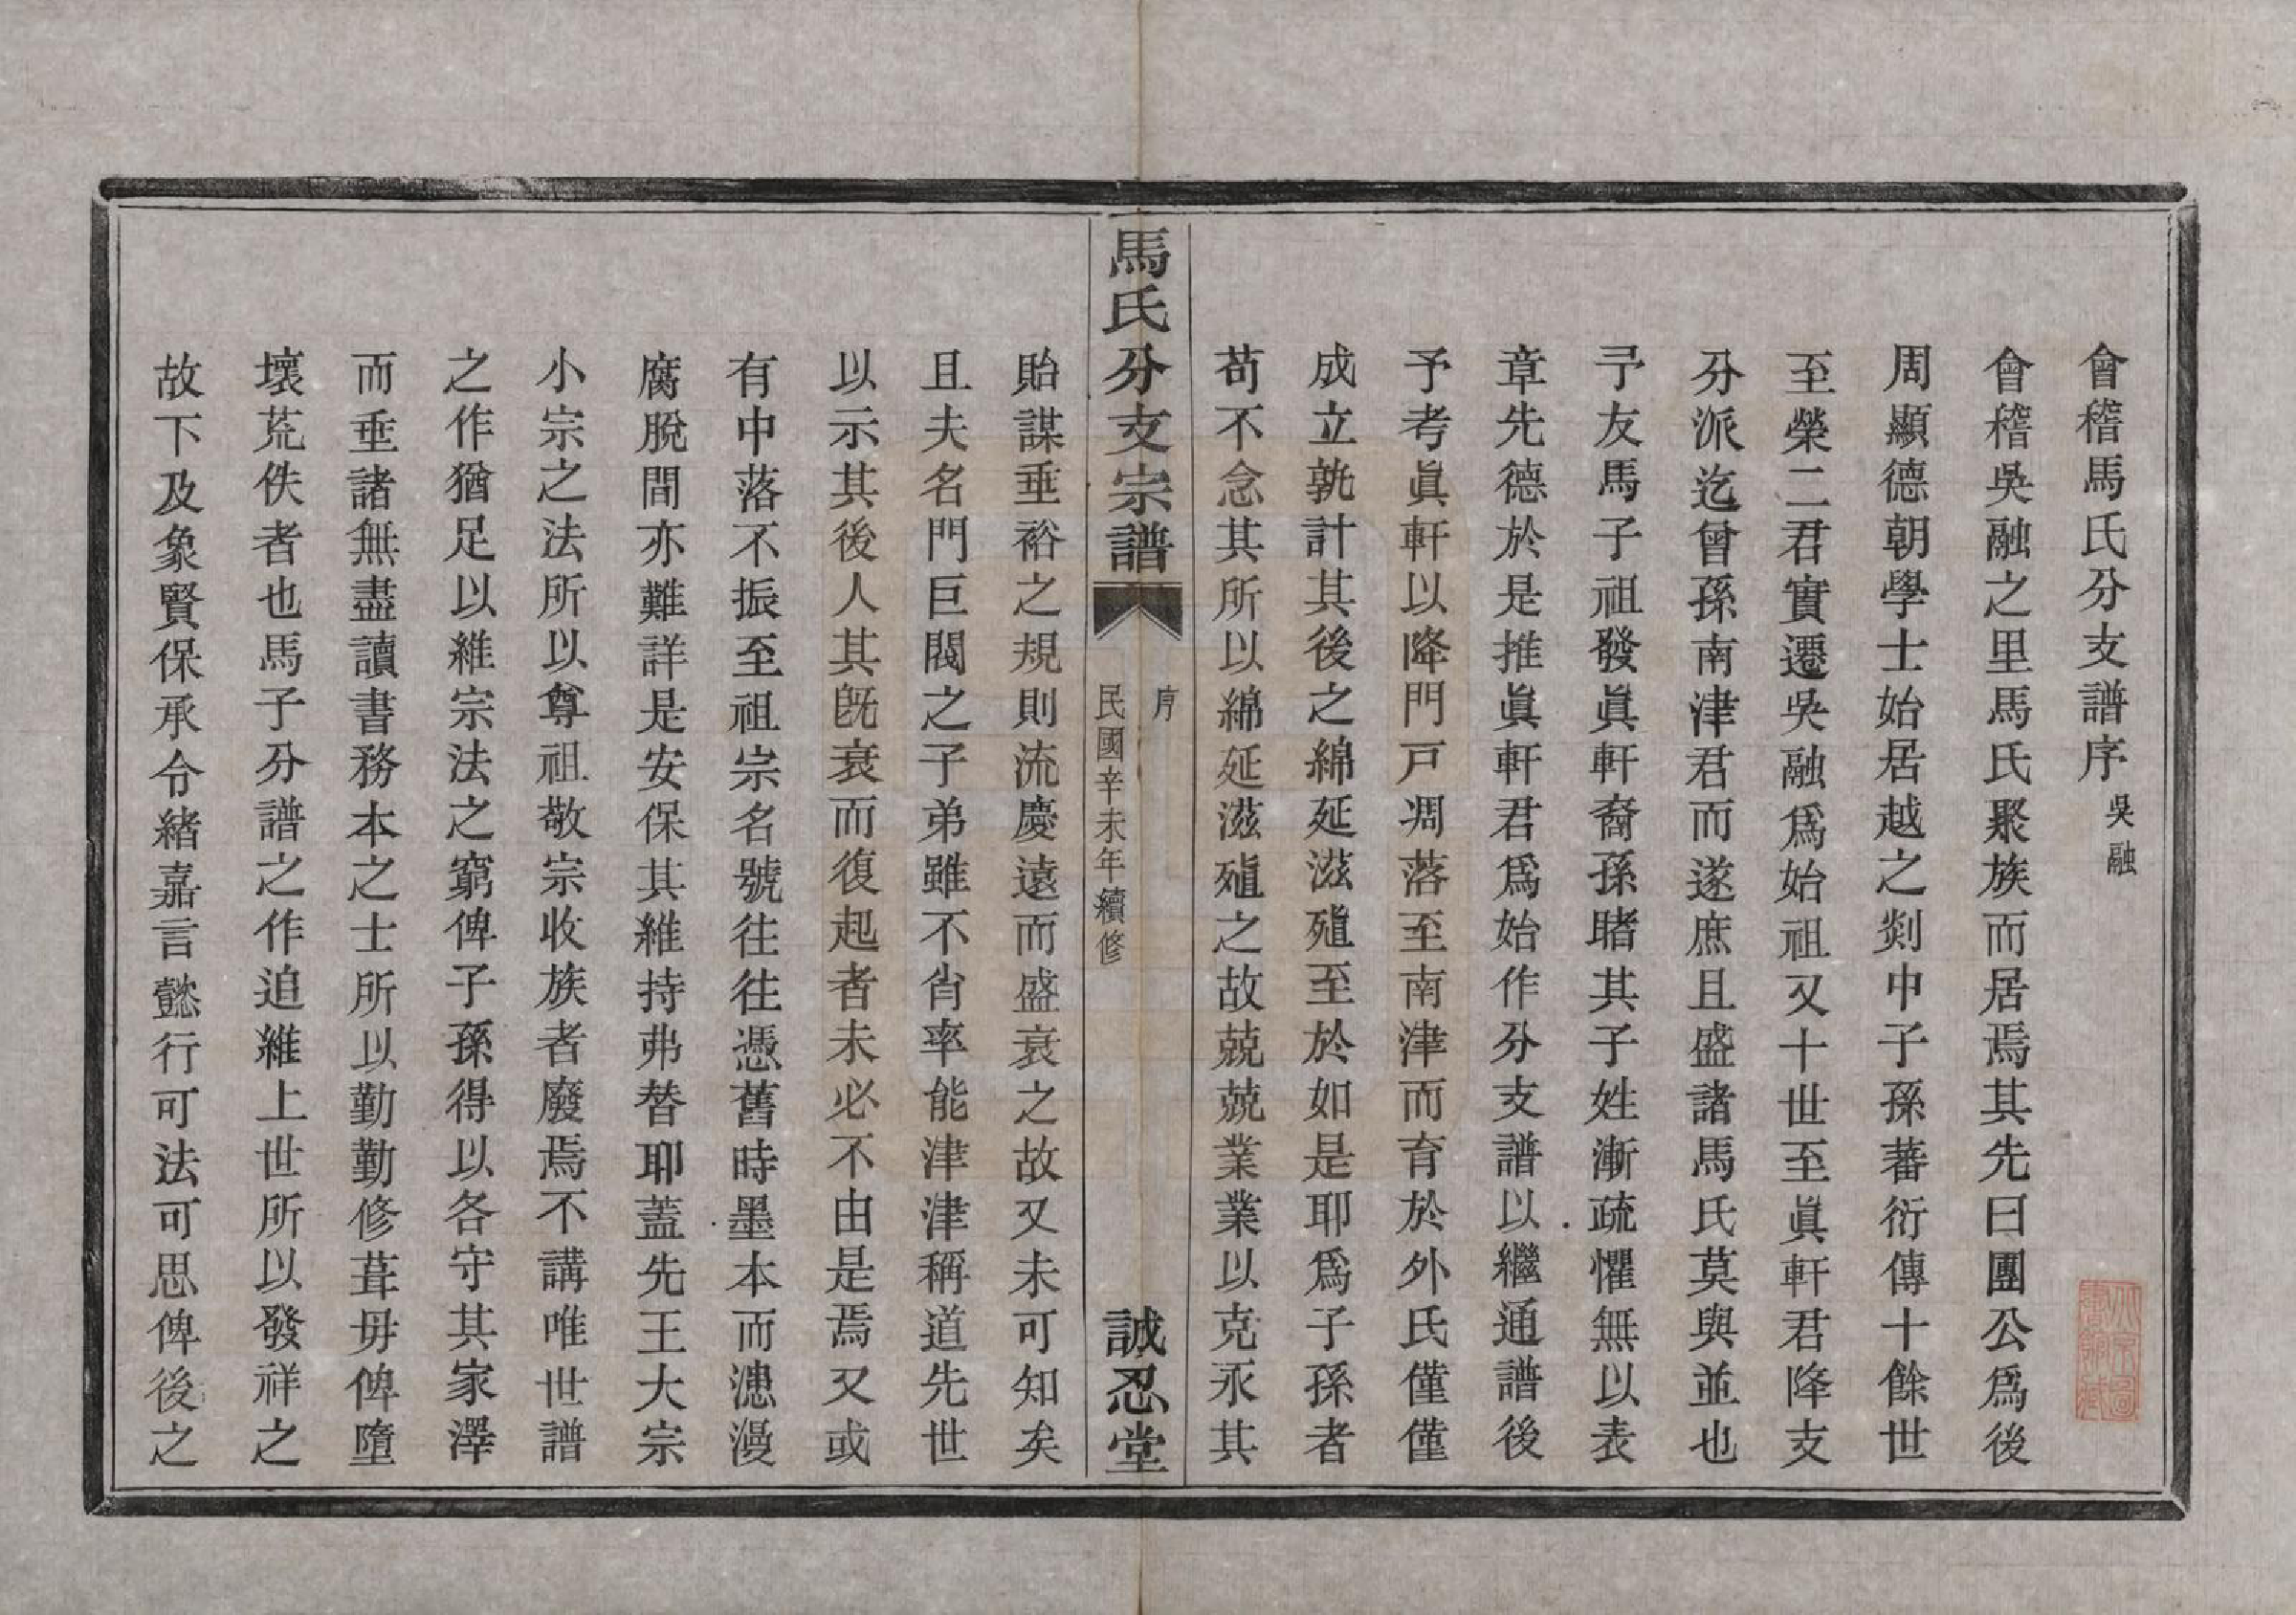 會稽馬氏分支譜序 吳融
會稽吳融之里馬氏聚族而居焉其先曰團公爲後
周顯德朝學士始居越之剡中子孫蕃衍傳十餘世
至榮二君實遷吳融爲始祖又十世至眞軒君降支
分派迄曾孫南津君而遂庶且盛諸馬氏莫與並也
予友馬子祖發眞軒裔孫睹其子姓漸疏懼無以表
章先德於是推眞軒君爲始作分支譜以繼通譜後
予考眞軒以降門戸凋落至南津而育於外氏僅僅
成立孰計其後之綿延滋殖至於如是耶爲子孫者
苟不念其所以綿延滋殖之故兢兢業業以克永其
馬氏分支宗譜
序
民國辛未年續修
誠忍堂
貽謀垂裕之規則流慶遠而盛衰之故又未可知矣
且夫名門巨閥之子弟雖不肖率能津津稱道先世
以示其後人其旣衰而復起者未必不由是焉又或
有中落不振至祖宗名號往往憑舊時墨本而漶漫
腐脫間亦難詳是安保其維持弗替耶蓋先王大宗
小宗之法所以尊祖敬宗收族者廢焉不講唯世譜
之作猶足以維宗法之窮俾子孫得以各守其家澤
而垂諸無盡讀書務本之士所以勤勤修葺毋俾墮
壞荒佚者也馬子分譜之作追維上世所以發祥之
故下及象賢保承令緒嘉言懿行可法可思俾後之